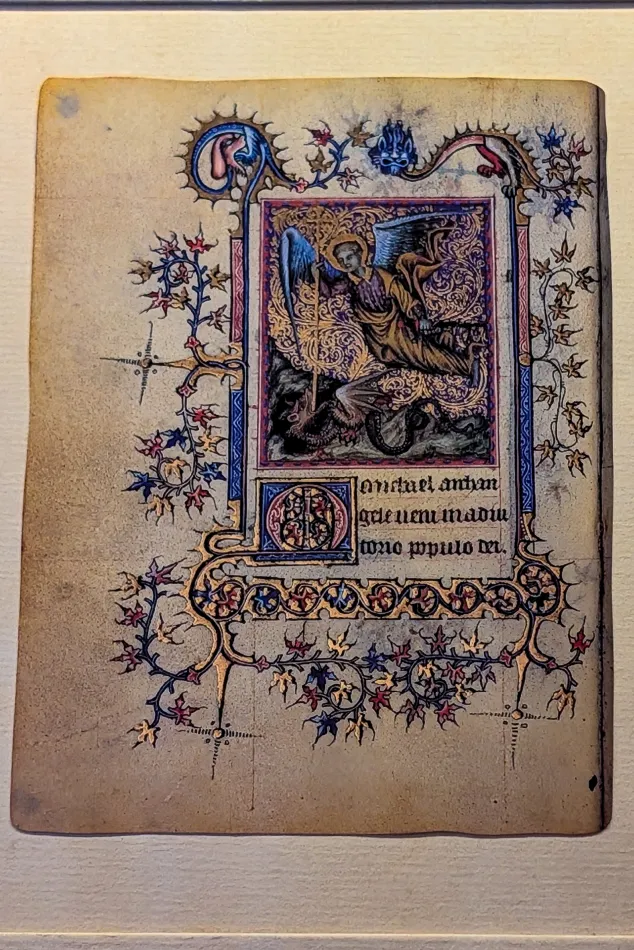 Michael archan
gele veni in adiu
torio populo dei.